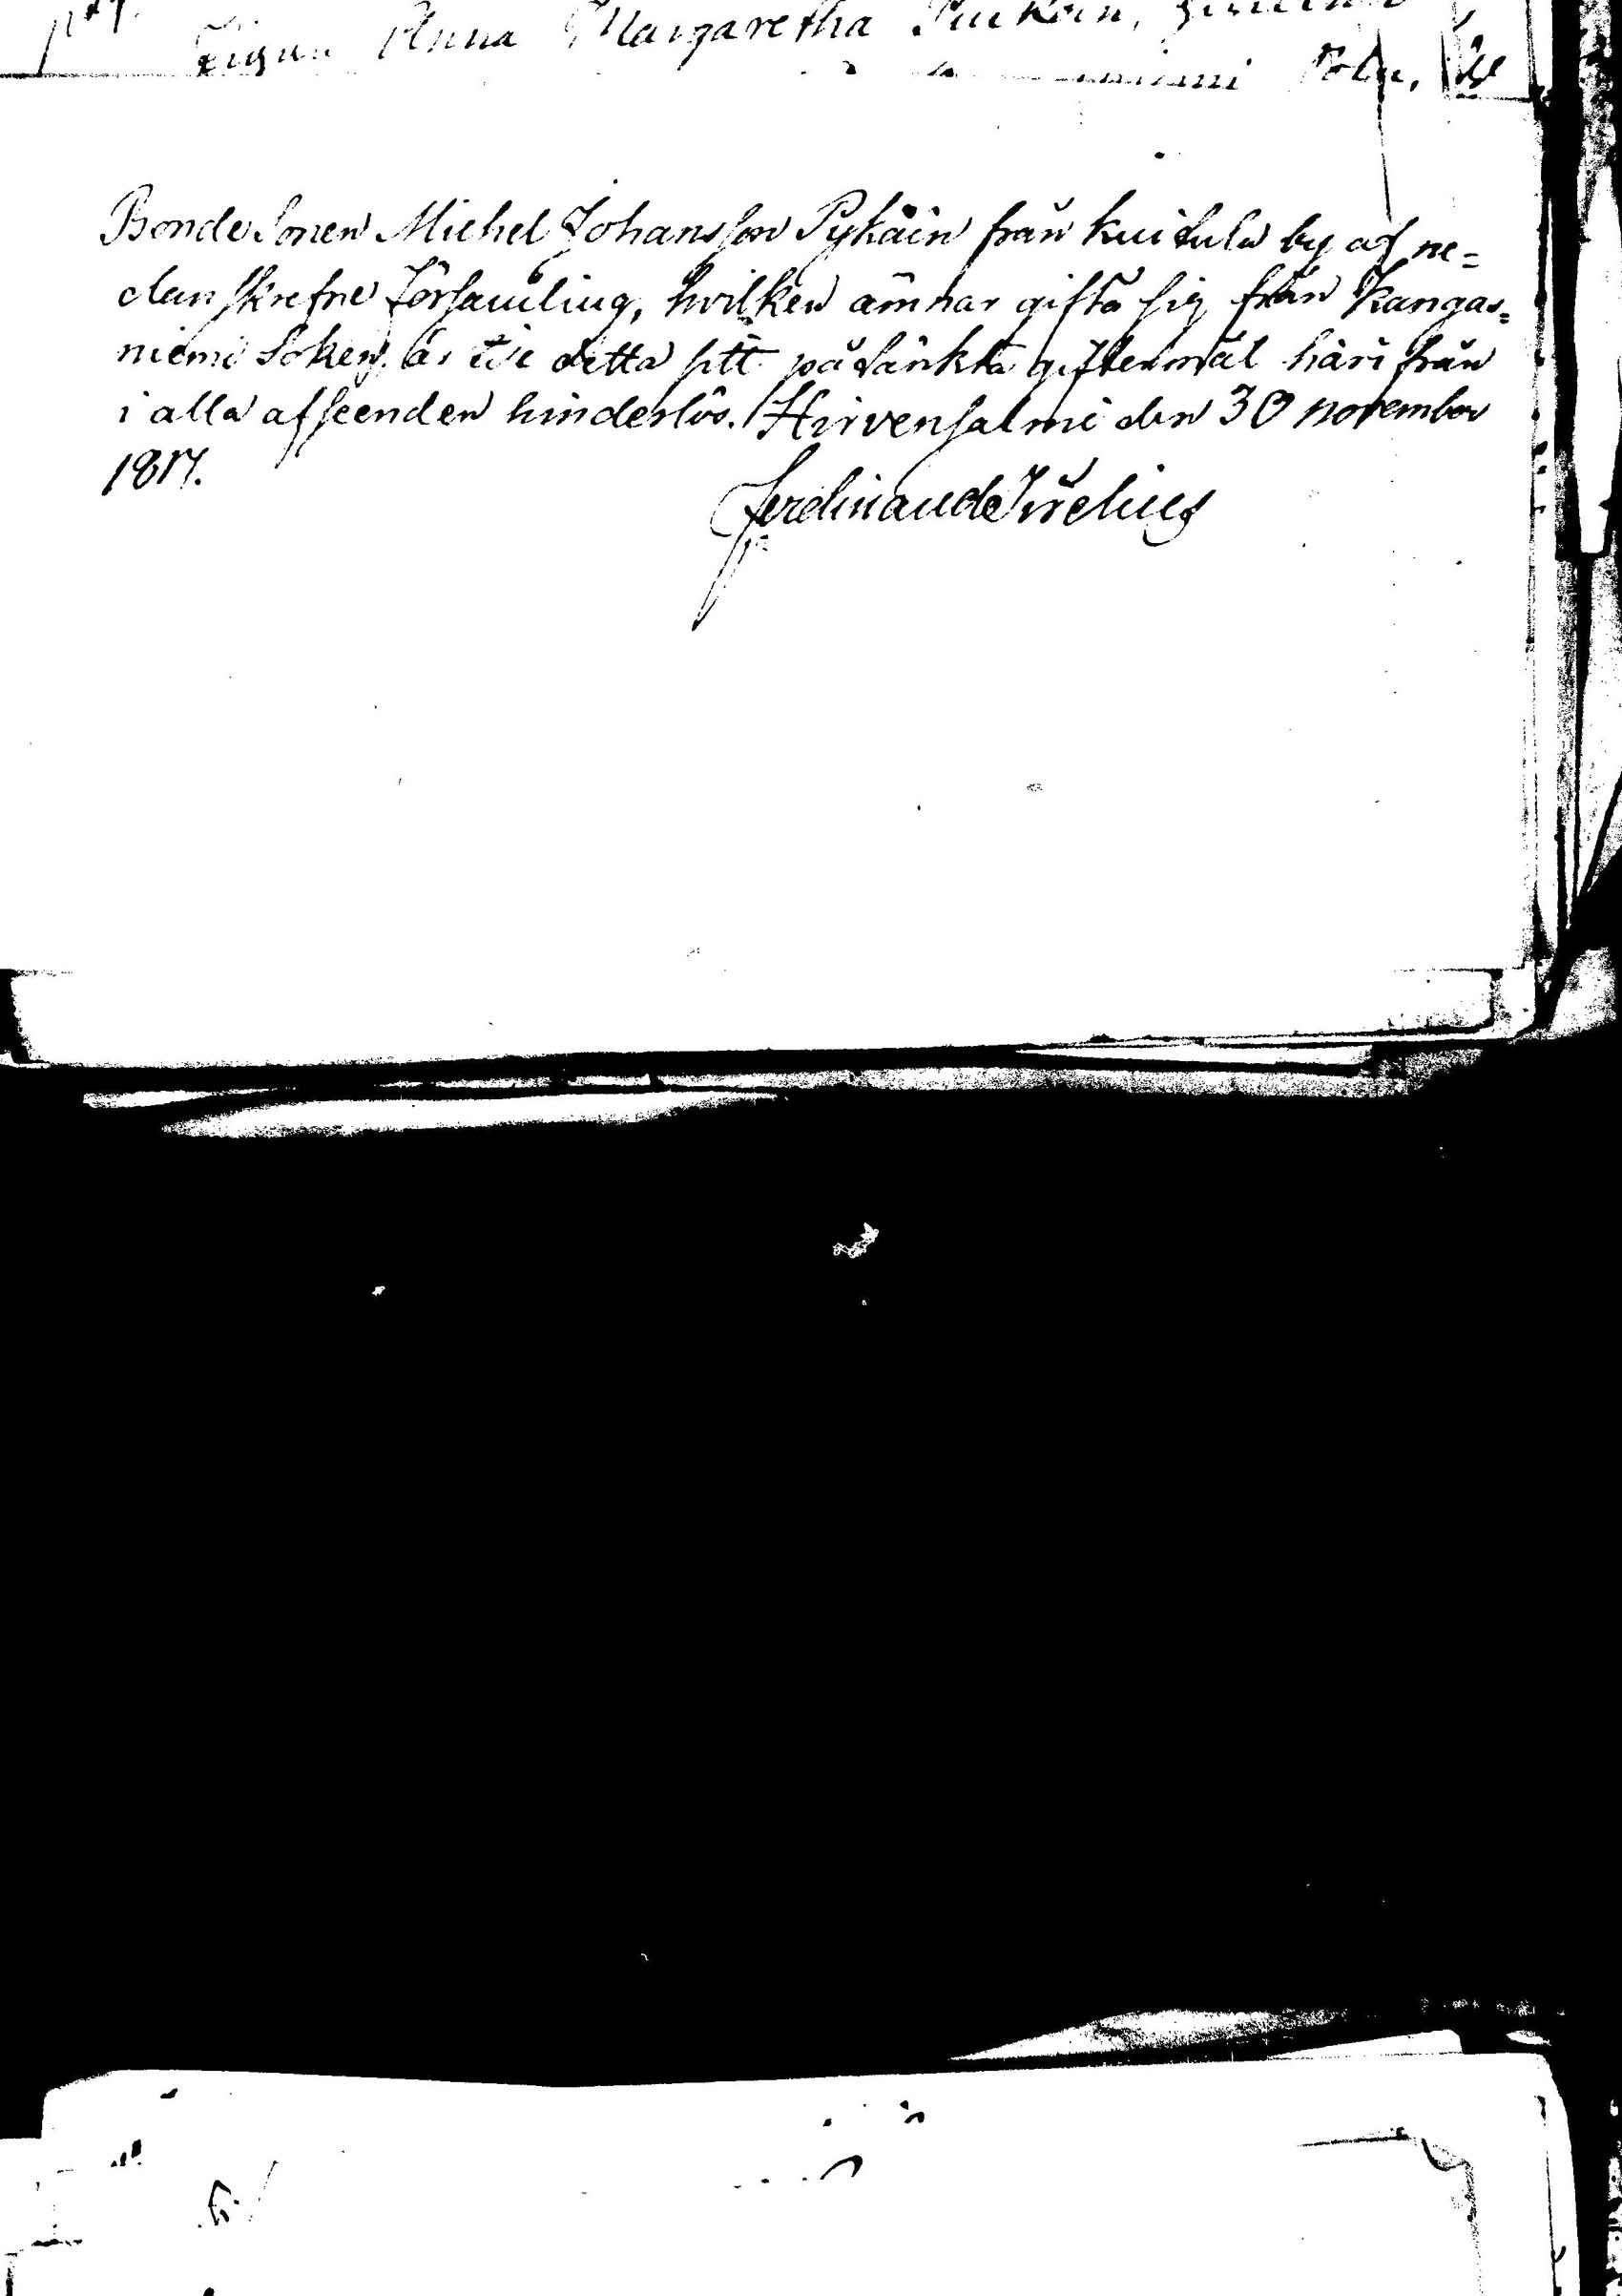 Pigan Anna Margaretha
Bonde Sonen Michel Johansson Pykäin från Kuitula by af ne=
dan skrefne Församling, hvilken ämnar gifta sig från Kangas=
niemi Soken, är til detta sitt påtänkta giftermål häri från
i alla afseenden hinderlös. Hirvensalmi den 30 november
1817.
Ferdinand